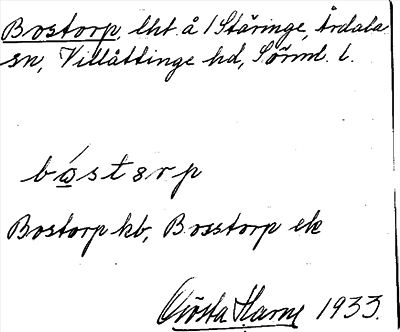 Bostorp, lht. å 1 Stäringe, Årdala
sn, Villåttinge hd, Sörml. l.
bóstɜrp
Bostorp kb, Bosstorp ek
Gösta Harne 1933.